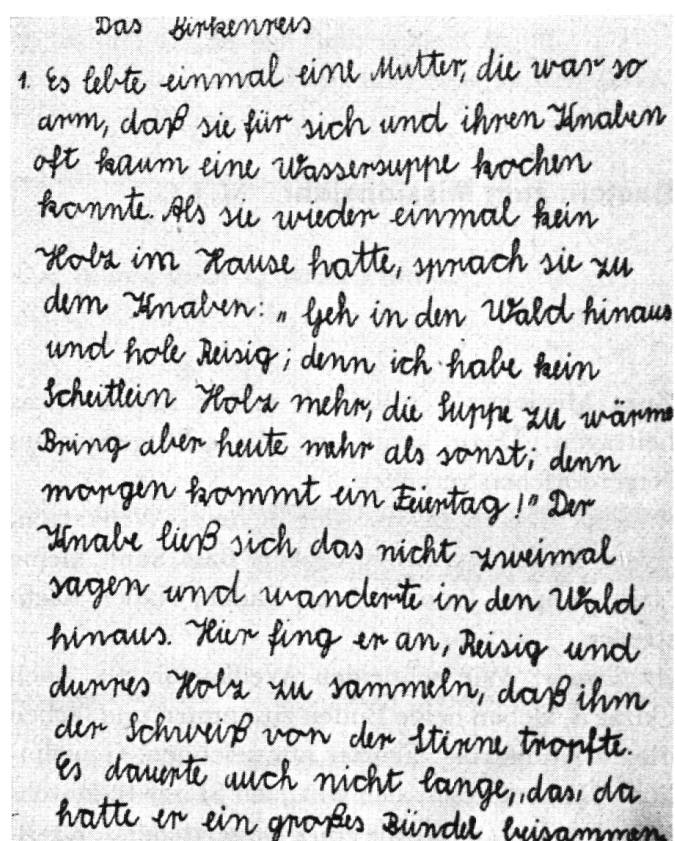 Das Birkenreis
1. Es lebte einmal eine Mutter, die war so
arm, daß sie für sich und ihren Knaben
oft kaum eine Wassersuppe kochen
konnte. Als sie wieder einmal kein
Holz im Hause hatte, sprach sie zu
dem Knaben: „Geh in den Wald hinaus
und hole Reisig; denn ich habe kein
Scheitlein Holz mehr, die Suppe zu wärme
Bring aber heute mehr als sonst; denn
morgen kommt ein Feiertag!" Der
Knabe ließ sich das nicht zweimal
sagen und wanderte in den Wald
hinaus. Hier fing er an, Reisig und
dürres Holz zu sammeln, daß ihm
der Schweiß von der Stirne tropfte.
Es dauerte auch nicht lange, das, da
hatte er ein großes Bündel beisammen